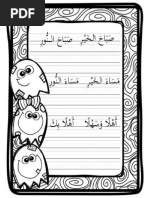 صَبَاحَ الخَيْرِ صَبَاحَ النُّورِ
مَسَاءَ الخَيْرِ مَسَاءَ النُّورِ
أَهْلًا وَسَهْلًا أَهْلًا بِكَ